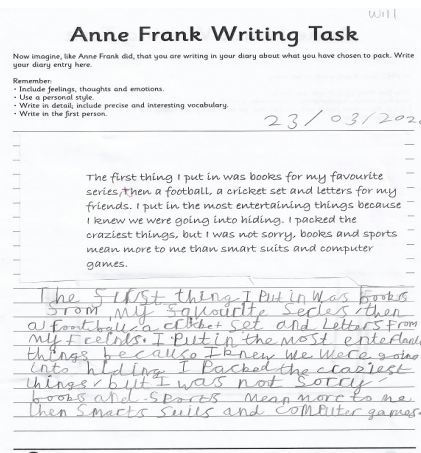 Will
Anne Frank Writing Task
Now imagine, like Anne Frank did, that you are writing in your diary about what you have chosen to pack. Write
your diary entry here.
Remember:
• Include feelings, thoughts and emotions.
• Use a personal style.
• Write in detail; include precise and interesting vocabulary.
• Write in the first person.
23/03/202
The first thing I put in was books for my favourite
series, then a football, a cricket set and letters for my
friends. I put in the most entertaining things because
I knew we were going into hiding. I packed the
craziest things, but I was not sorry, books and sports
mean more to me than smart suits and computer
games.
The first thing I Put in was books
from my favourite Series, then
a football, a cricket set and Letters From
my Freinds. I Put in the most entertain
things because I knew we were going
into hiding I Packed the craziest
things, but I was not Sorry
books and Sports mean more to me
then Smarts Suits and computer games.